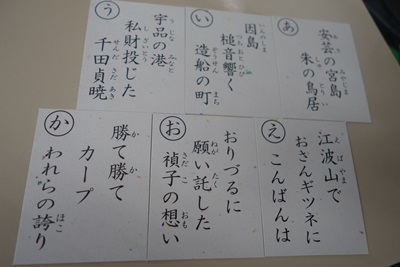 あ
安芸の宮島
朱の鳥居
い
因島
槌音響く
造船の町
う
宇品の港
私財投じた
千田貞暁
え
江波山で
おさんギツネに
こんばんは
お
おりづるに
願い託した
禎子の想い
か
勝て勝て
カープ
われらの誇り